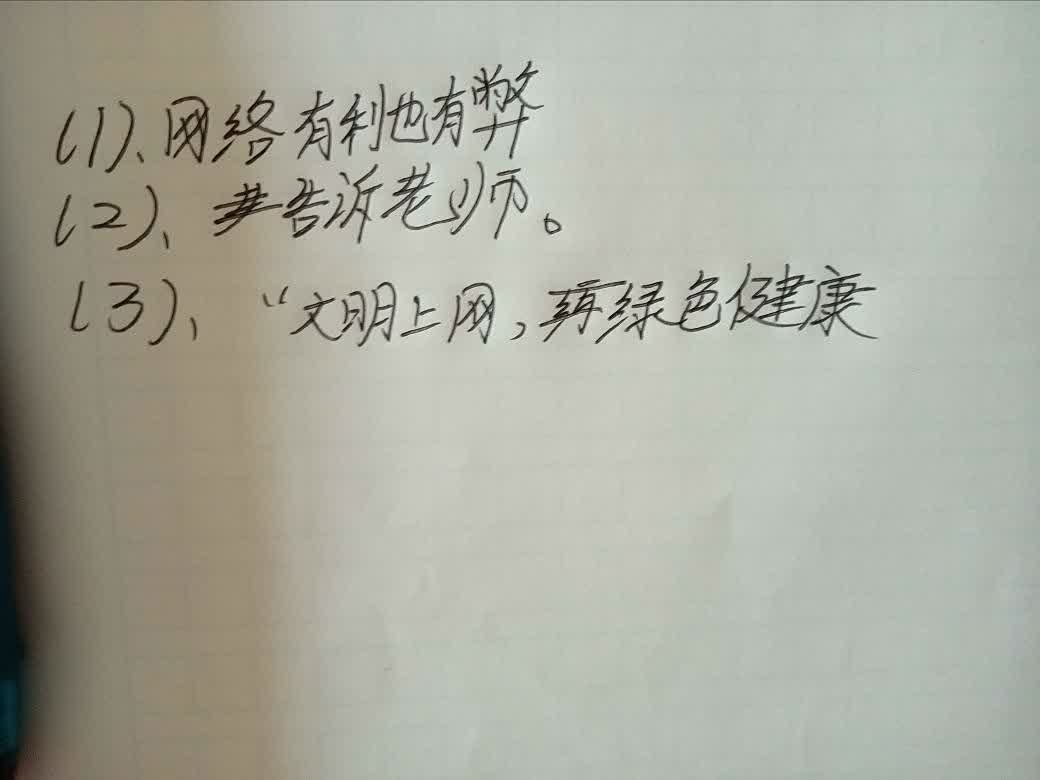 (1)、网络有利也有弊
(2)、告诉老师。
(3)、“文明上网,绿色健康